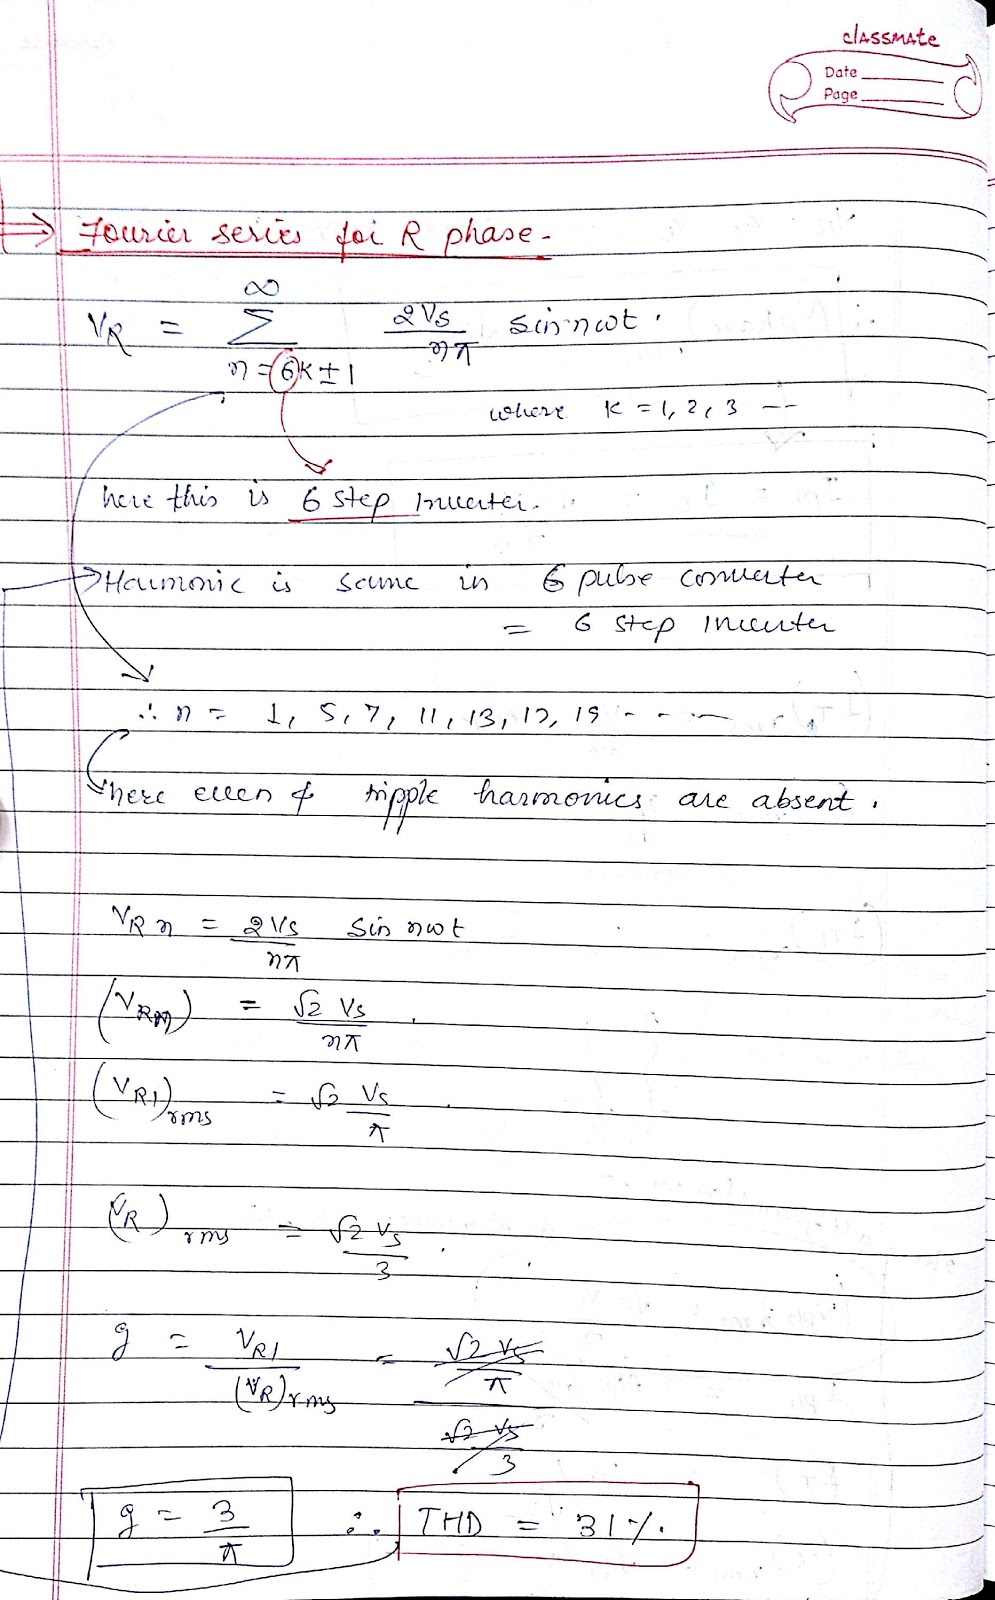 classmate
Date
Page
Fourier series for R phase -
V_R = ∞ Σ n = 6k ± 1 2Vs/nπ sin nωt .
where k = 1, 2, 3 --
here this is 6 step Inverter.
Harmonic is same in 6 pulse converter
= 6 step Inverter
∴ n = 1, 5, 7, 11, 13, 17, 19 - - - -
here even & tripple harmonics are absent .
V_Rn = 2Vs/nπ sin nωt
(V_Rn) = √2 Vs/nπ .
(V_R1)rms = √2 Vs/π .
(V_R)rms = √2 Vs/3 .
g = V_R1/(V_R)rms = (√2 Vs/π)/(√2 Vs/3)
g = 3/π ∴ THD = 31%.